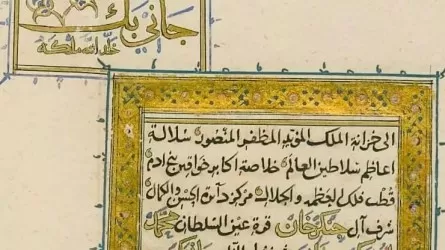 جاني بك
خلد الله ملكه
الى خزانة الملك المؤيد المظفر المنصور سلالة
اعاظم سلاطين العالم خلاصة اكابر خواقين بني ادم
قطب فلك العظمة والجلالة مركز دائرة الحسن والكمال
شرف آل جنكز خان قرة عين السلطان محمد